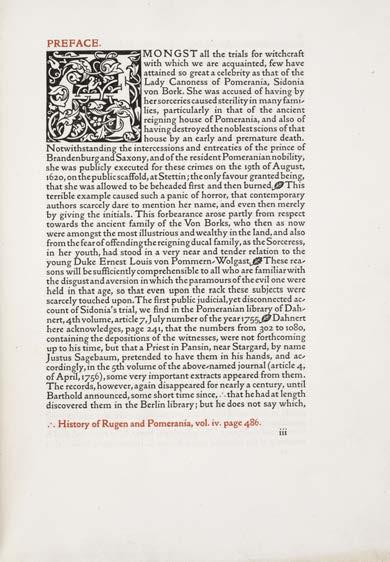 PREFACE.
AMONGST all the trials for witchcraft
with which we are acquainted, few have
attained so great a celebrity as that of the
Lady Canoness of Pomerania, Sidonia
von Bork. She was accused of having by
her sorceries caused sterility in many fami-
lies, particularly in that of the ancient
reigning house of Pomerania, and also of
having destroyed the noblest scions of that
house by an early and premature death.
Notwithstanding the intercessions and entreaties of the prince of
Brandenburg and Saxony, and of the resident Pomeranian nobility,
she was publicly executed for these crimes on the 19th of August,
1620, on the public scaffold, at Stettin; the only favour granted being,
that she was allowed to be beheaded first and then burned. This
terrible example caused such a panic of horror, that contemporary
authors scarcely dare to mention her name, and even then merely
by giving the initials. This forbearance arose partly from respect
towards the ancient family of the Von Borks, who then as now
were amongst the most illustrious and wealthy in the land, and also
from the fear of offending the reigning ducal family, as the Sorceress,
in her youth, had stood in a very near and tender relation to the
young Duke Ernest Louis von Pommern-Wolgast. These rea-
sons will be sufficiently comprehensible to all who are familiar with
the disgust and aversion in which the paramours of the evil one were
held in that age, so that even upon the rack these subjects were
scarcely touched upon. The first public, judicial, yet disconnected ac-
count of Sidonia's trial, we find in the Pomeranian library of Dah-
nert, 4th volume, article 7, July number of the year 1755. Dahnert
here acknowledges, page 241, that the numbers from 302 to 1080,
containing the depositions of the witnesses, were not forthcoming
up to his time, but that a Priest in Pansin, near Stargard, by name
Justus Sagebaum, pretended to have them in his hands, and ac-
cordingly, in the 5th volume of the above-named journal (article 4,
of April, 1756), some very important extracts appeared from them.
The records, however, again disappeared for nearly a century, until
Barthold announced, some short time since, ∴ that he had at length
discovered them in the Berlin library; but he does not say which,
∴ History of Rugen and Pomerania, vol. iv. page 486.
iii